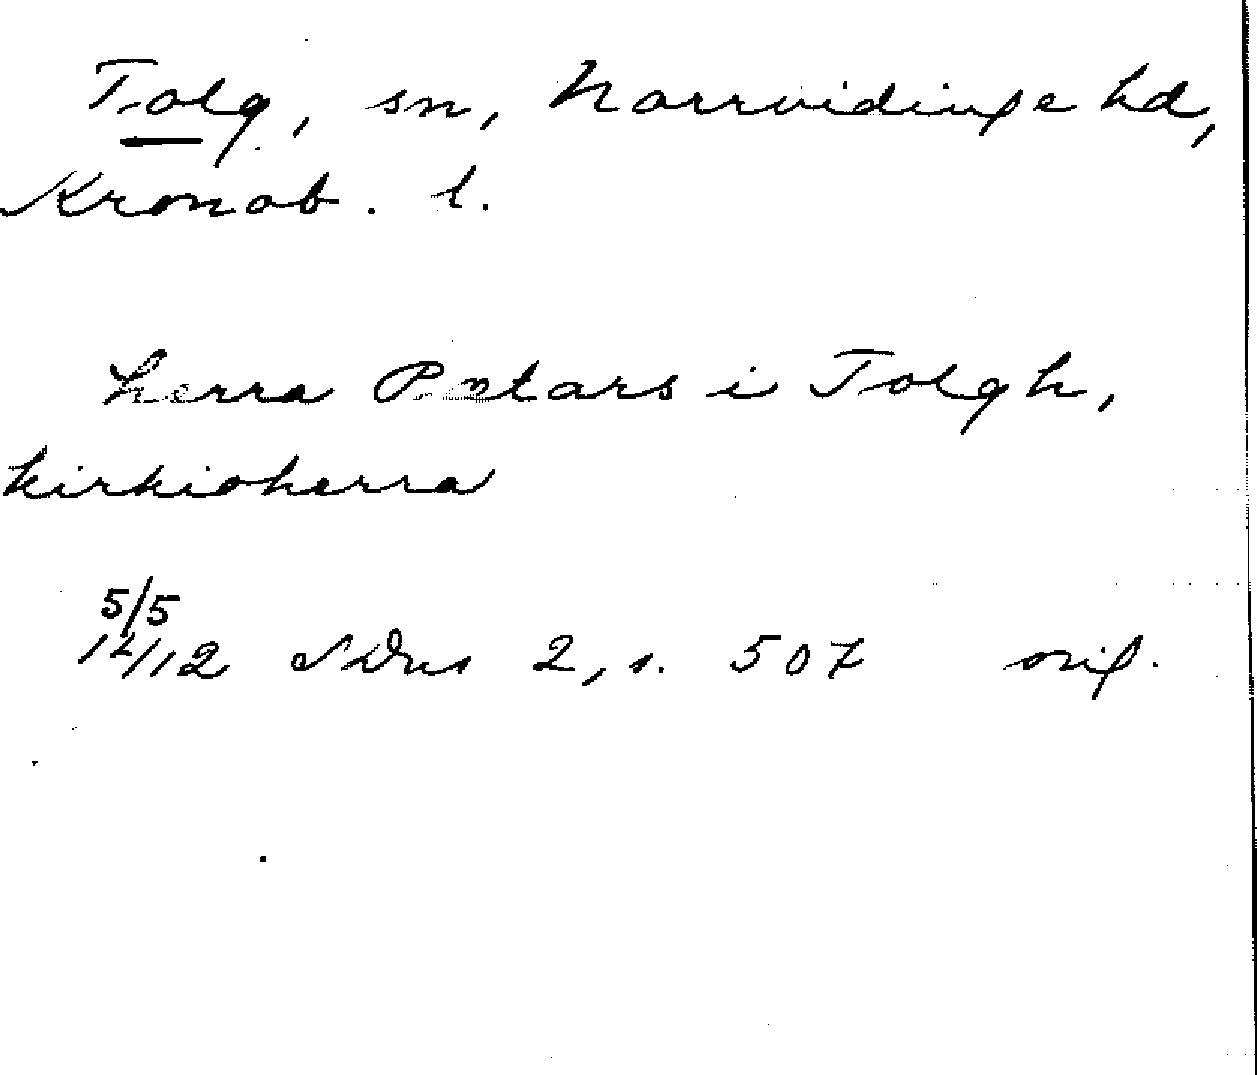 Tolg, sn, Norrvidinge hd,
Kronob. l.
herra Pætars i Tolgh,
kirkioherra
5/5
1412 SDns 2, s. 507 orig.